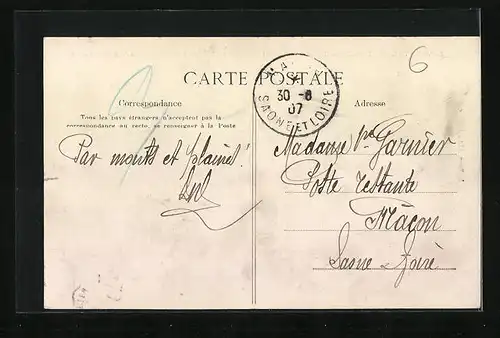 CARTE POSTALE
Correspondance
Tous les pays étrangers n'acceptent pas la
correspondance au recto, se renseigner à la Poste
Par monts et plaines!
Adresse
30 - 8
07
SAONE ET LOIRE
6
Madame Vve Garnier
Poste restante
Mâcon
Saone Loire